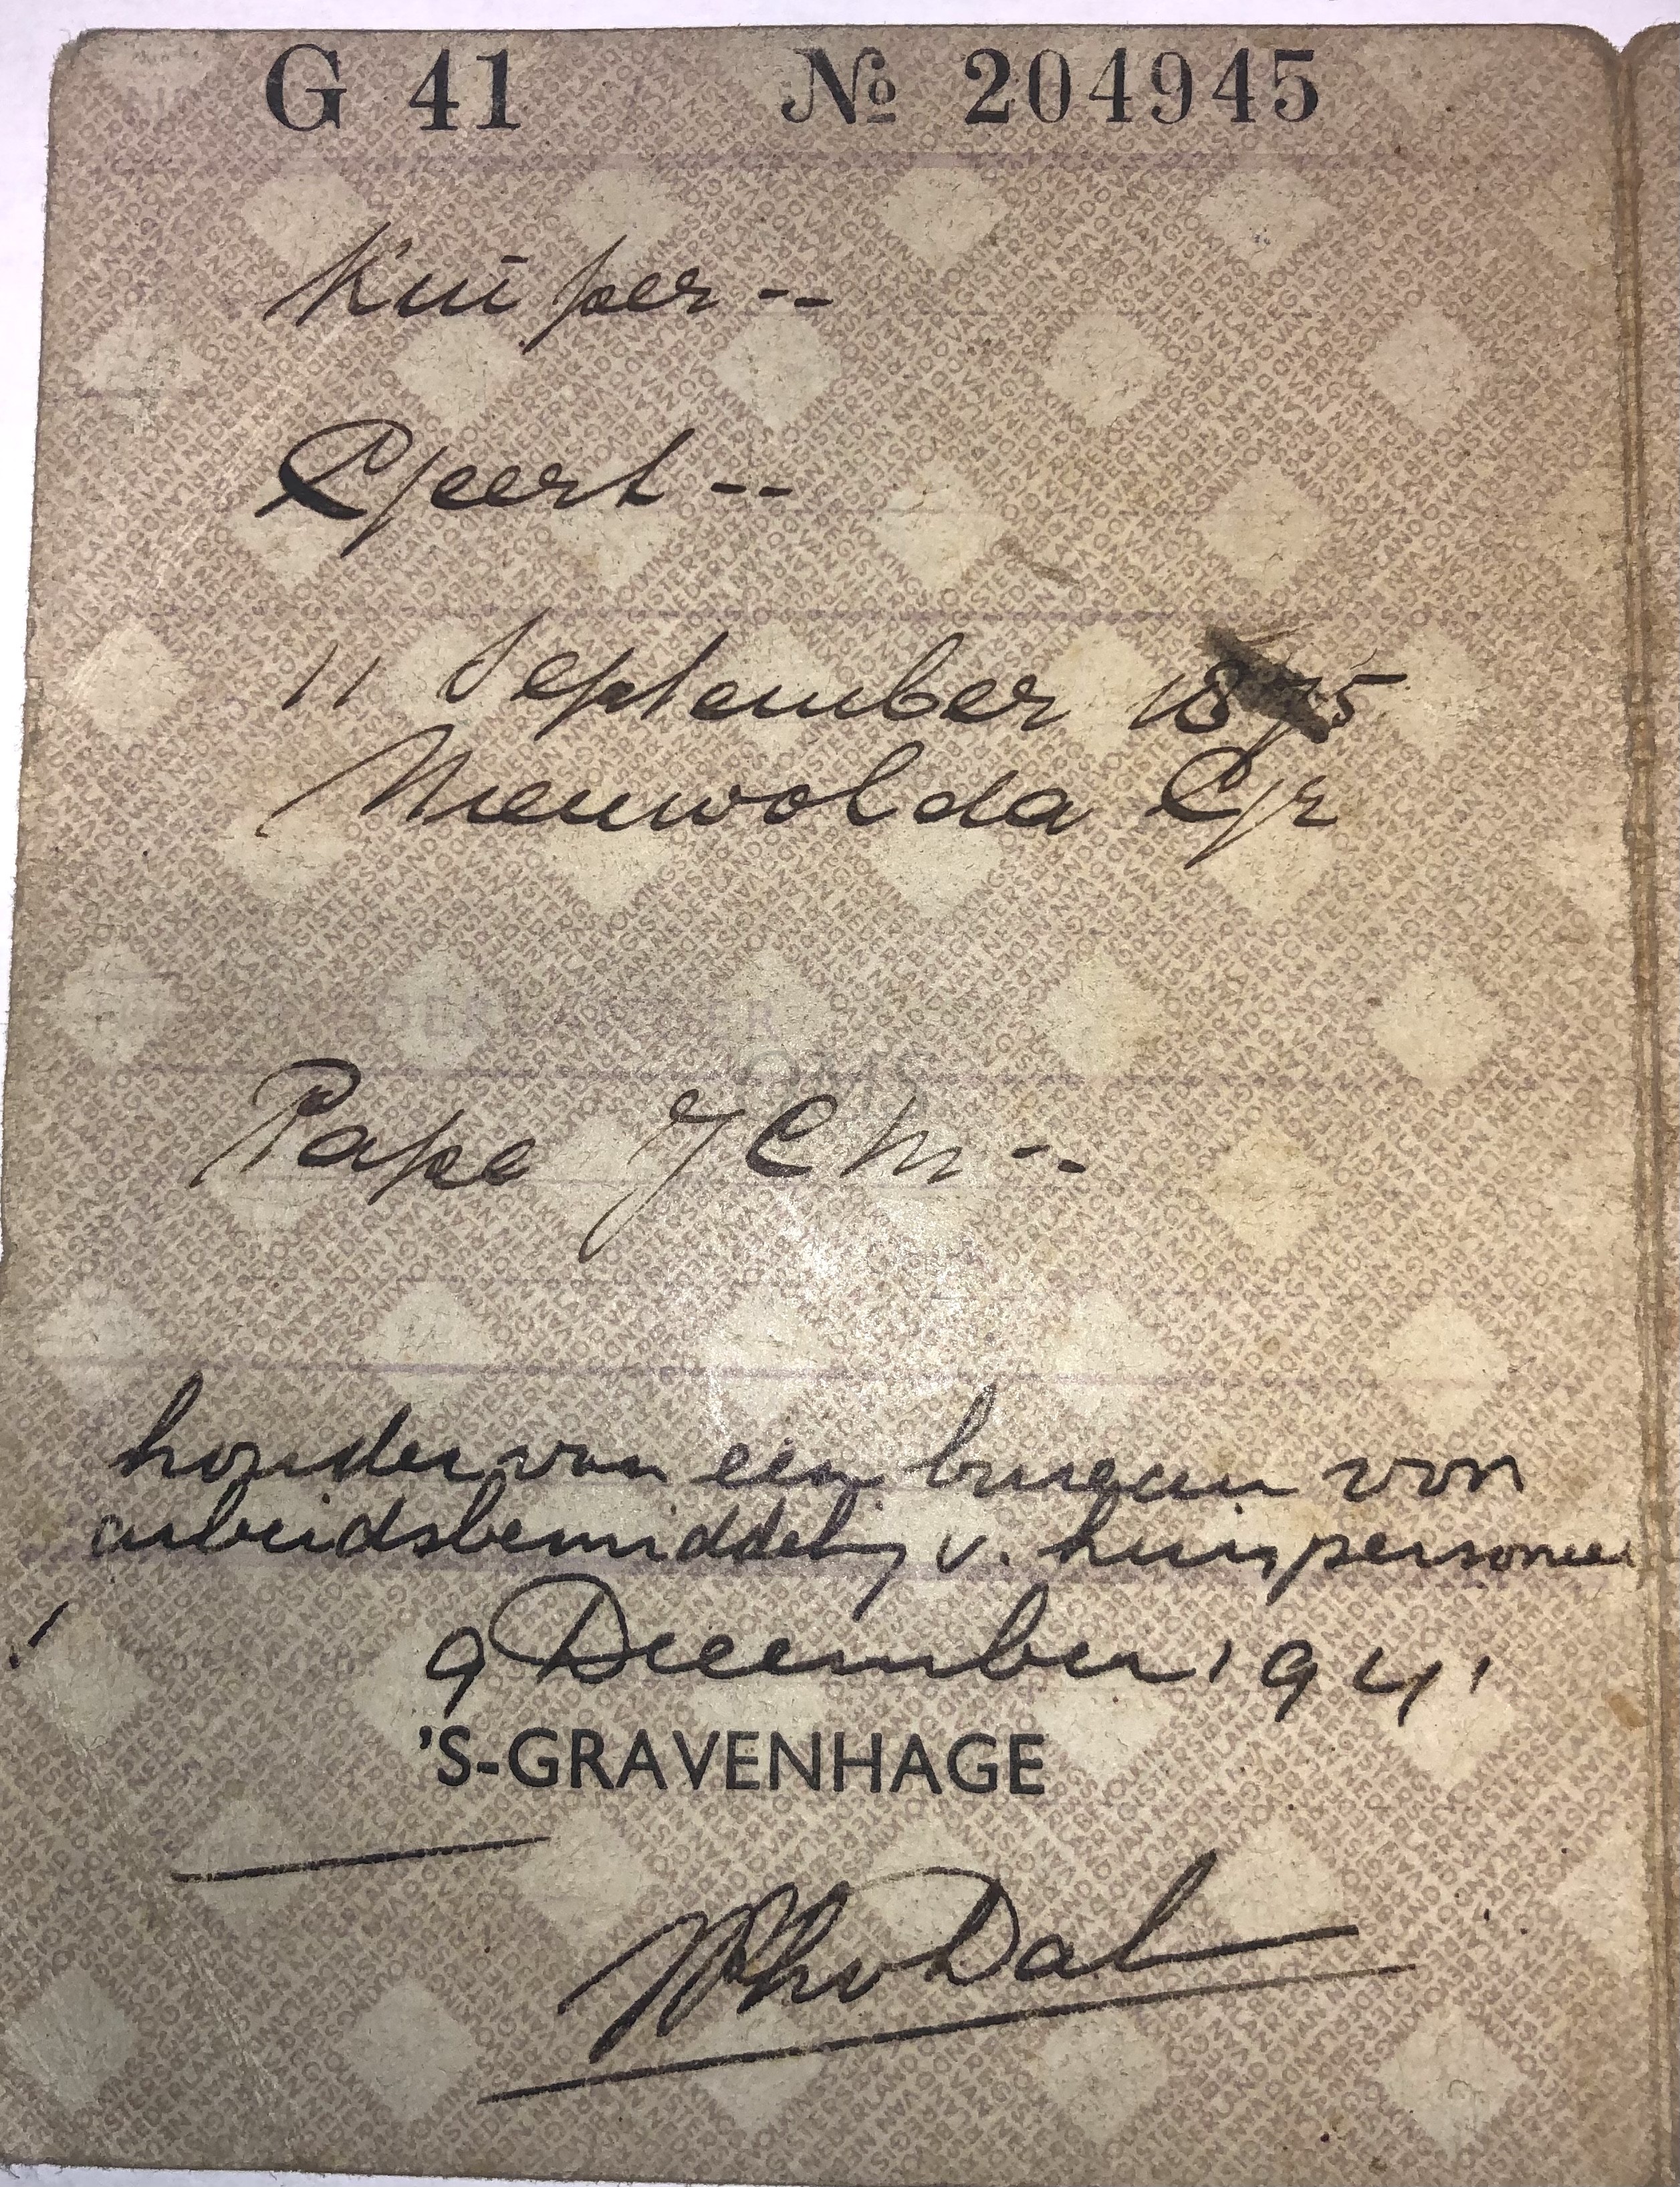 G 41 № 204945
Kuiper --
Geert --
11 September 1875
Nieuwolda Gr
Pape J C M --
houder van een bureau van
arbeidsbemiddeling v. huispersoneel
9 December 1941
'S-GRAVENHAGE